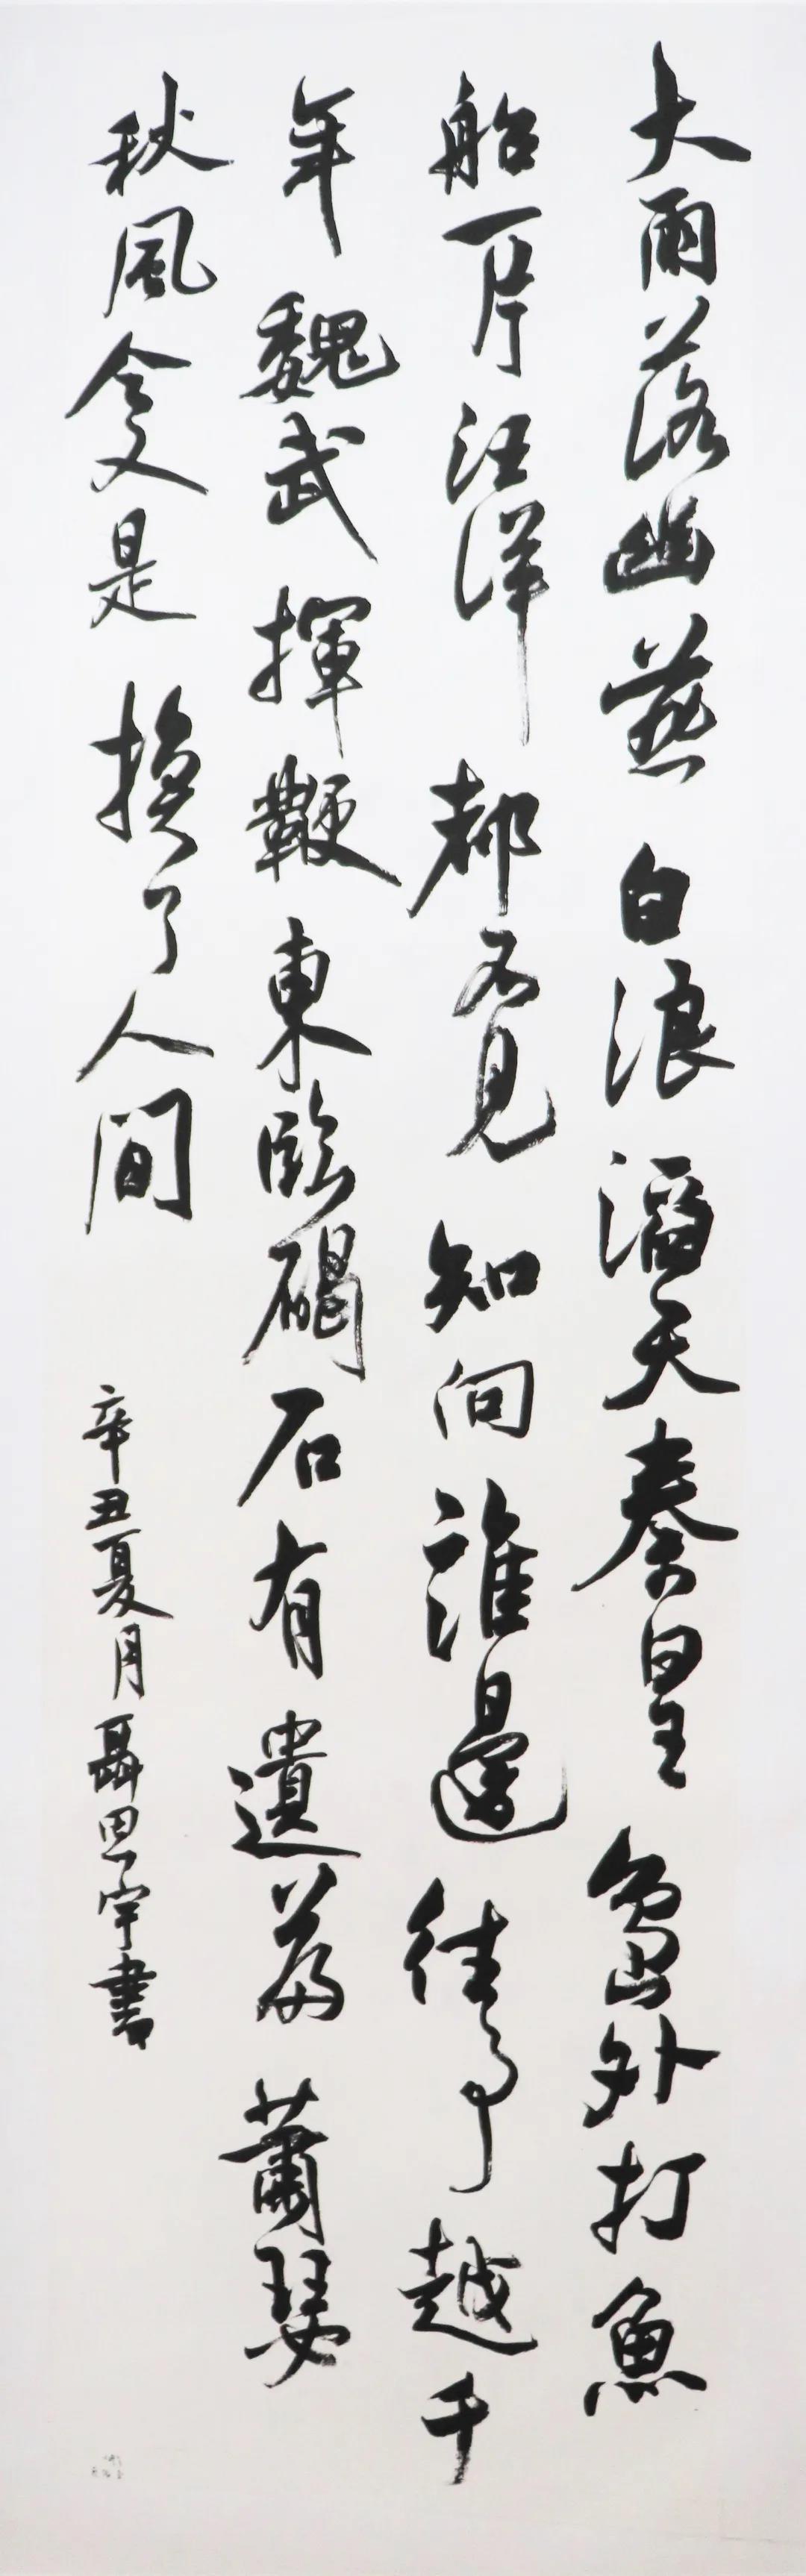 大雨落幽燕白浪滔天秦皇島外打魚
船一片汪洋都不見知向誰邊往事越千
年魏武揮鞭東臨碣石有遺篇蕭瑟
秋風今又是換了人間
辛丑夏月聶思宇書